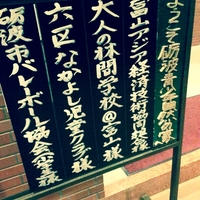 ようこそ砺波青少年自然の家
富山アジア経済技術協同組合様
大人の林間学校@富山様
六区なかよし児童クラブ様
砺波市バレーボール協会様